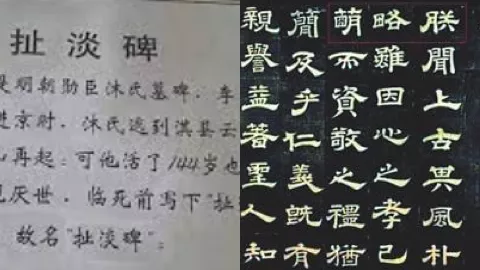 扯淡碑
明朝勋臣沐氏墓碑. 李
进京时. 沐氏逃到淇县云
山再起; 可他活了144岁也
厌世. 临死前写下"扯
故名"扯淡碑".
朕聞上古其風朴
略雖因心之孝已
萌而資敬之禮猶
簡及乎仁義既有
親譽益著聖人知